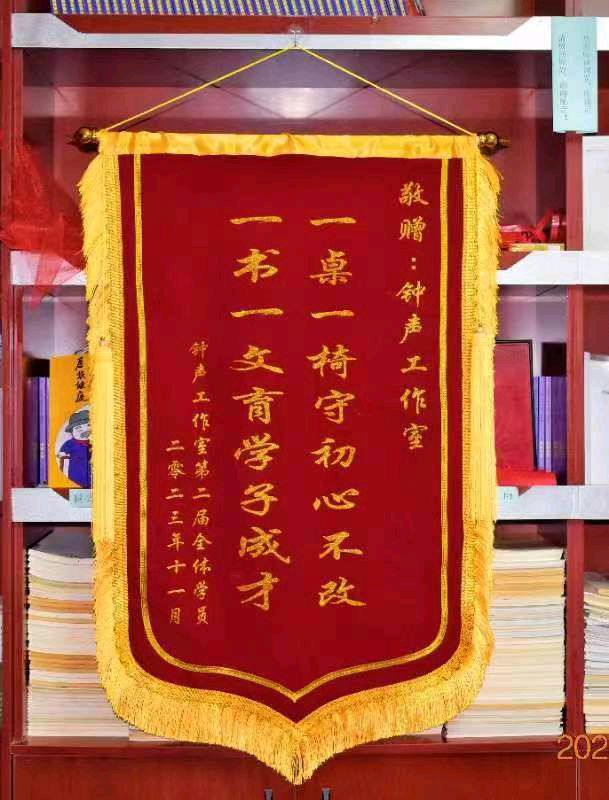 敬赠：钟声工作室
一桌一椅守初心不改
一书一文育学子成才
钟声工作室第二届全体学员
二零二三年十一月
202